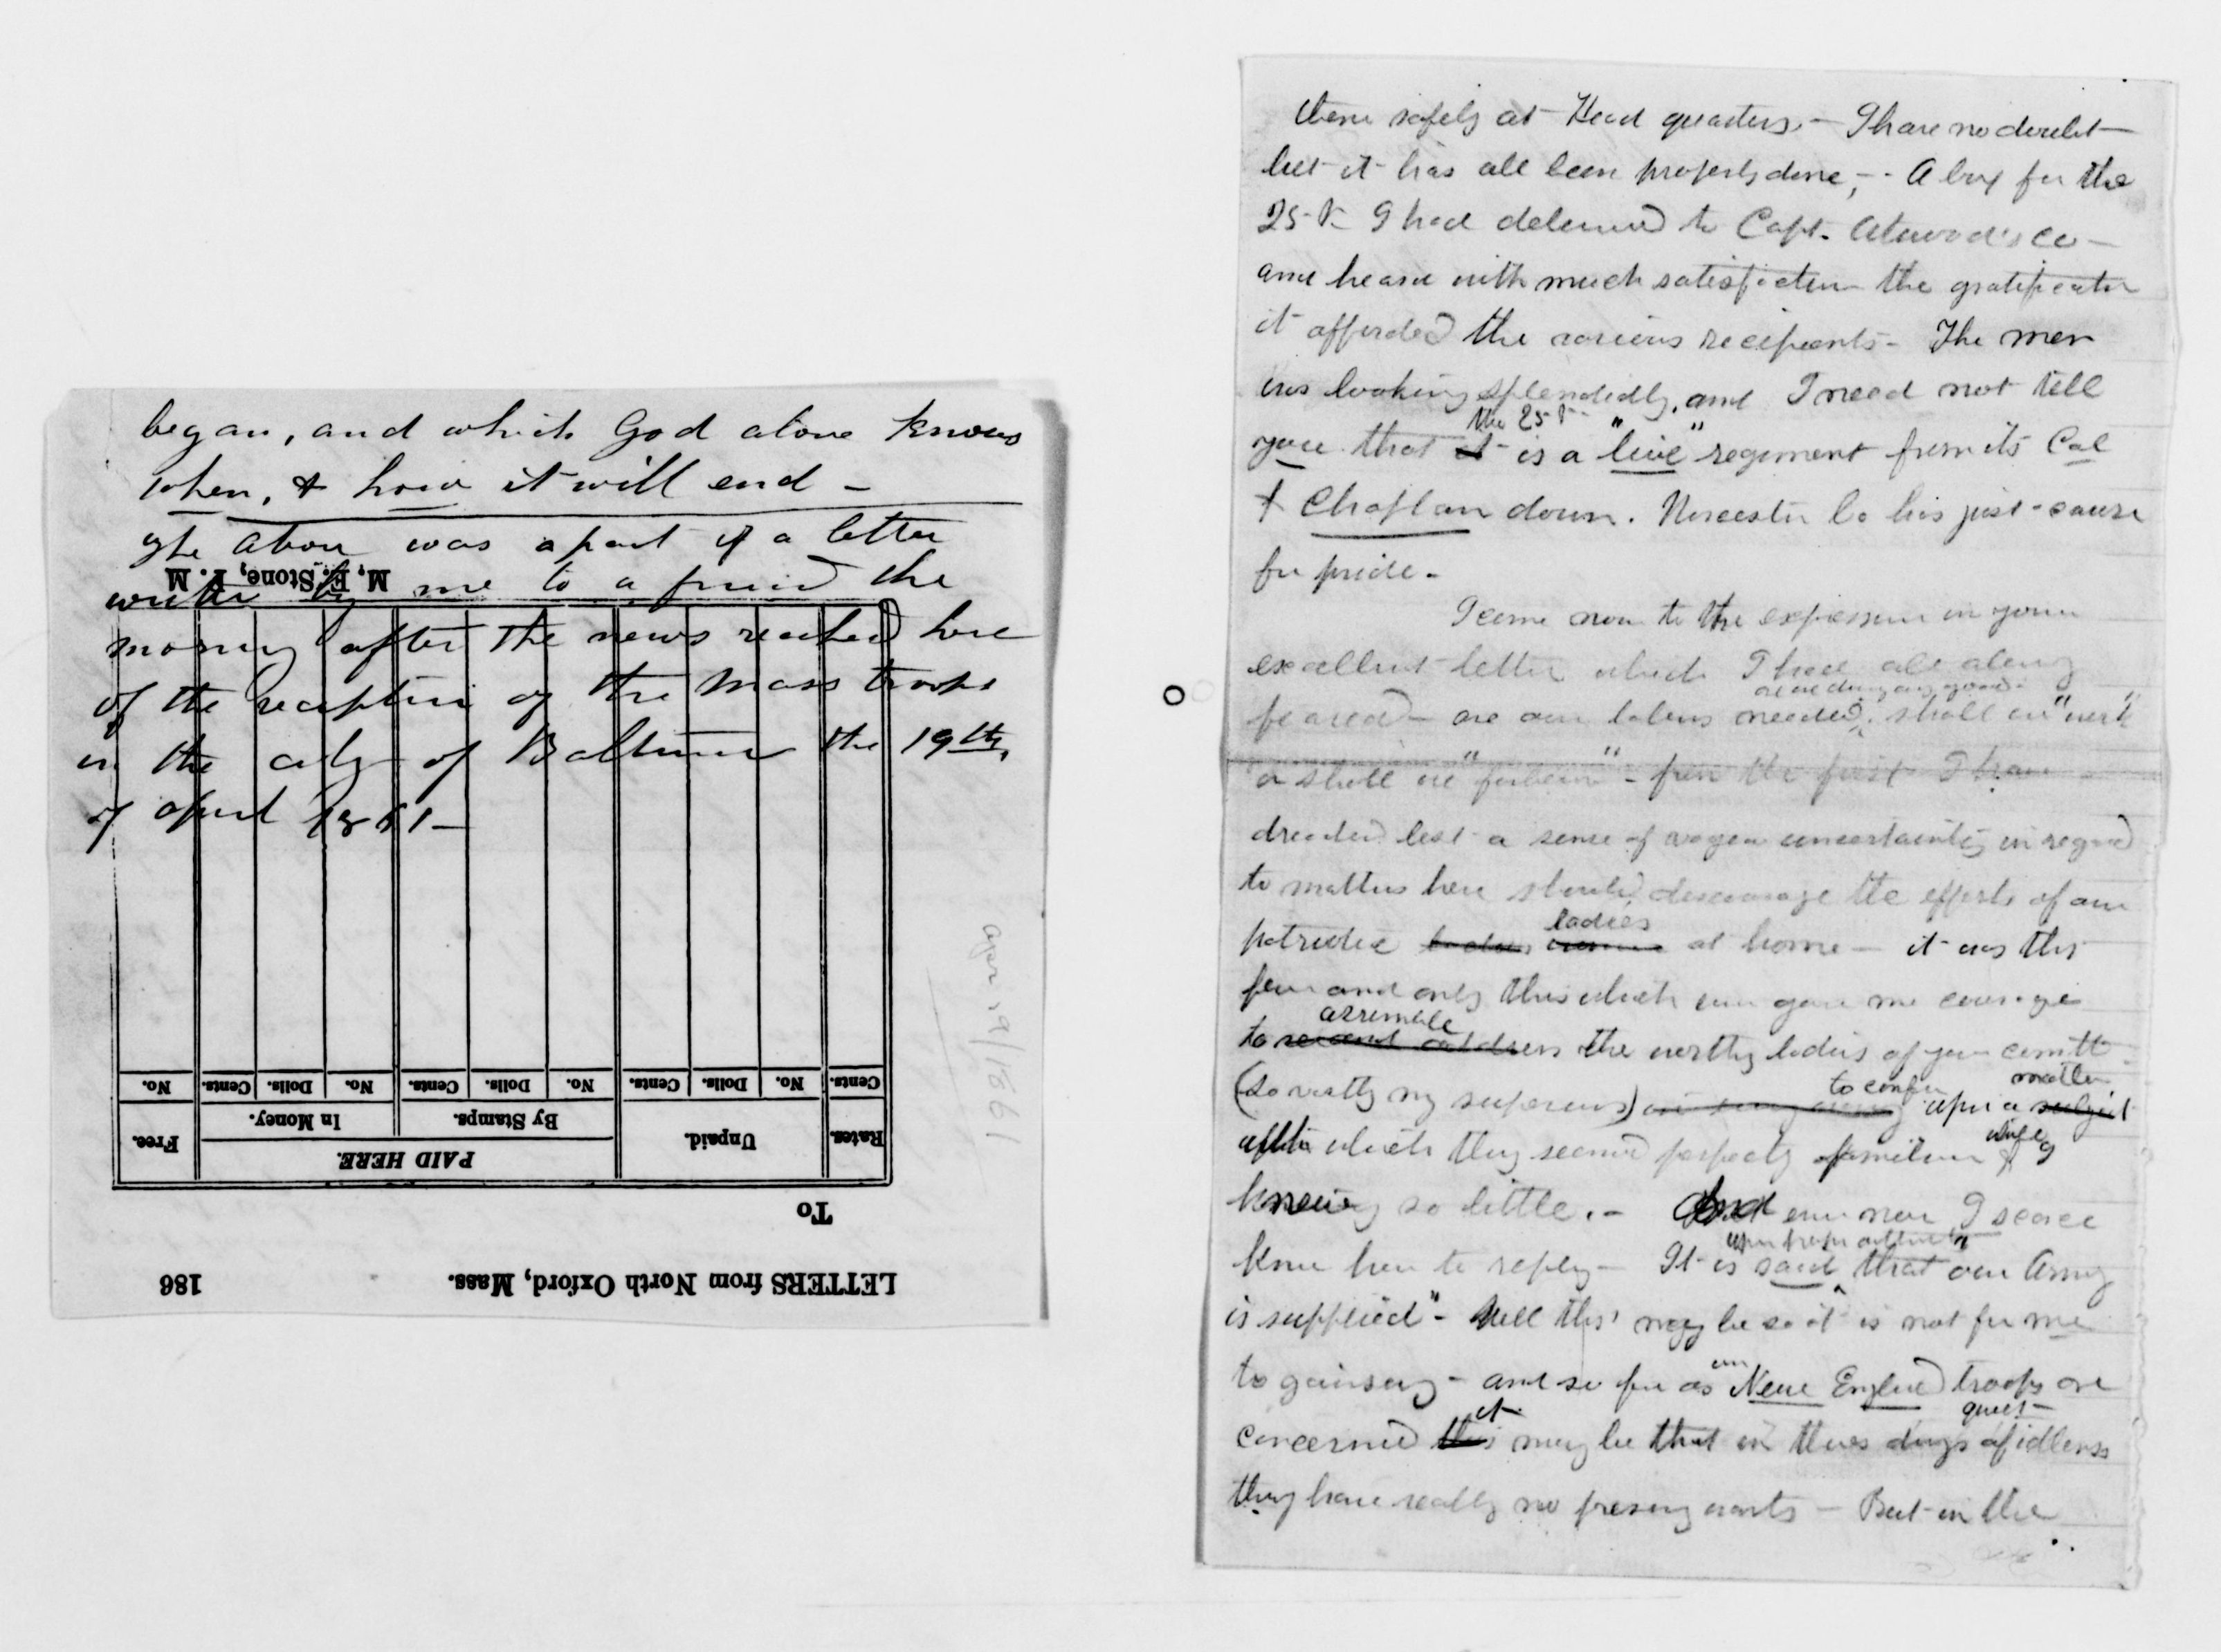 began, and which God alone knows
when, & how it will end -
The above was a part of a letter
written by me to a friend the
morning after the news reached here
of the reception of the Mass troops
in the city of Baltimore the 19th,
of April 1861 -
M. E. Stone, P. M
No. Cents. Dolls. No. Cents. Dolls. No. Cents. Dolls. No. Cents.
Free. In Money. By Stamps. Unpaid. Rates.
PAID HERE.
To
LETTERS from North Oxford, Mass. 186
Apr 19/1861
them safely at Head quarters. - I have no doubt
but it has all been properly done, - A box for the
25th I had delivered to Capt. Atwood's Co -
and heard with much satisfaction the gratification
it afforded the various recipients - The men
was looking splendidly, and I need not tell
you that it the 25th is a "live" regiment from its Col
& Chaplan down. Worcester Co has just cause
for pride -
I come now to the expression in your
excellent letter which I had all along
feared - are our labors needed, are we doing any good - shall we "work"
or shall we "forbear" - from the first I have
dreaded lest a sense of vague uncertainty in regard
to matters here should discourage the efforts of our
patriotic ladies at home - it was this
fear and only this which even gave me courage
to assemble the worthy ladies of your comitt
(so vastly my superiors) to confer upon a subject matter
which they seemed perfectly familiar & while I
knew so little. - And even now I scarce
know how to reply - It is said, upon proper authority that "our Army
is supplied" - Well this may be so it is not for me
to gainsay - and so far as our New England troops are
concerned this it may be that in these days of quiet idleness
they have really no presing wants - But in the